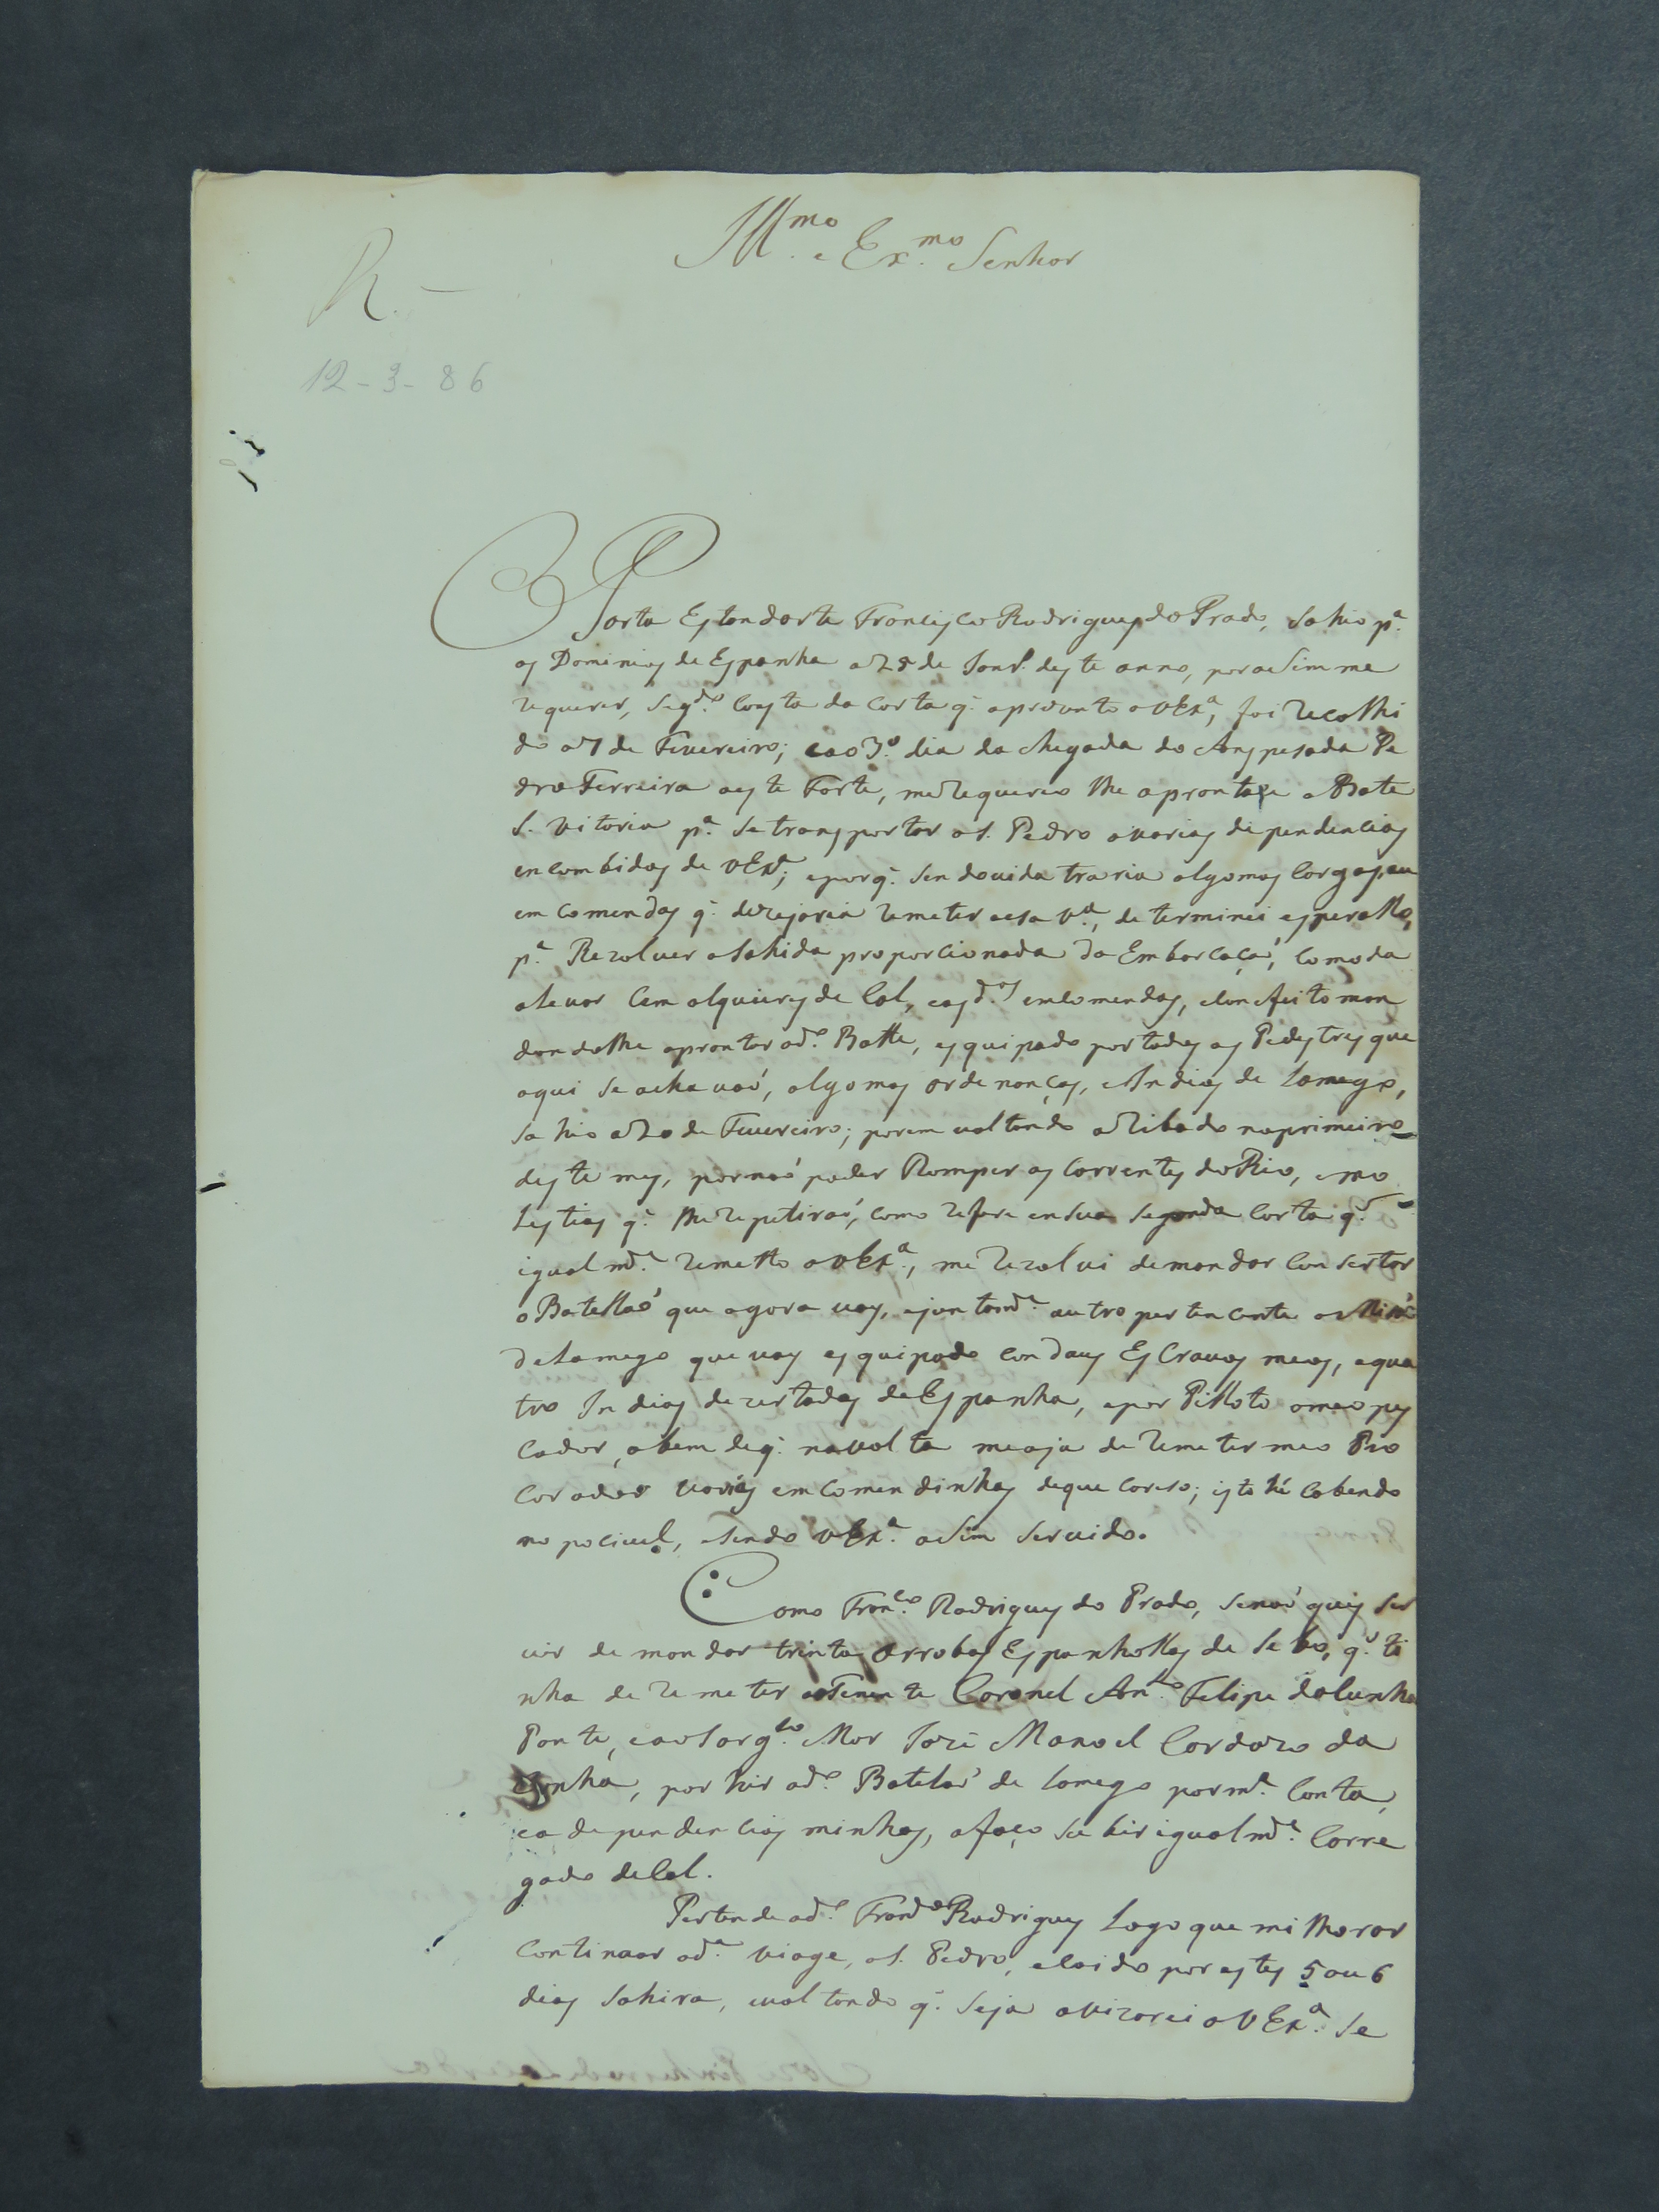 Ill.mo e Ex.mo Senhor
R. —
12-3-86
Porta Estandarte Francisco Rodrigues do Prado, sahio p.ª
os Dominios de Espanha a 28 de Janr.º deste anno, por asim me
requerer, seg.do consta da carta q. aprezento a VEx.ª, foi recolhi
do a 7 de Fevereiro; e ao 3.º dia da chegada do Anspesada Pe
dro Ferreira a este Forte, me requereo lhe aprontase a Bote
S. Vitoria p.ª se transportar a S. Pedro a varias dependencias
encombidas de VEx.ª; e porq. sen douvida traria algomas cargas, ou
em comendas q. dezejaria remeter a esa V.ª, determinei esperallo,
p.ª Rezolver a sahida proporcionada da Embarcaçaó, comoda
a levar cem alqueires de Sal, e as d.as emcomendas, e con efeito man
dandolhe aprontar o d.º Botte, esquipado por todos os Pedestres que
aqui se achavaó, algomas ordenanças, e Indios de Lamego,
sahio a 20 de Fevereiro; porem voltando aribado no primeiro
deste mes, por naó poder Romper as Correntes do Rio, e mo
lestias q. lhe repetiraó, como refere en sua segonda Carta q.
igual m.te remetto a VEx.ª, me rezolvi de mandar consertar
o Batellaó que agora vay, e juntam.te outro pertencente a
de Lamego que vay esquipado con dous Escravos meos, e qua
tro Indios dezertados de Espanha, e por Pilloto o meo pes
cador, a bem de q. na volta me aja de remeter meo Pro
corador varias emcomendinhas de que careso; isto hé cabendo
no pocivel, e sendo VEx.ª asim servido.
Como Fran.co Rodrigues do Prado, se naó quis ser
vir de mandar trinta arrobas Espanhollas de Sebo, q. ti
nha de remeter ao Tenente Coronel An.to Felipe da Cunha
Ponte, e ao Sarg.to Mor José Manoel Cardozo da
Cunha, por hir a d.º Batelaó de Lamego por m.ª Conta,
e a dependencias minhas, o faço subir igualm.te Carre
gado de Sal.
Pertende o d.º Fran.co Rodrigues logo que milhorar
continoar a d.ª viage, a S. Pedro, e Caido por estes 5 ou 6
dias sahira, e voltando q. seja avizarei a VEx.ª se